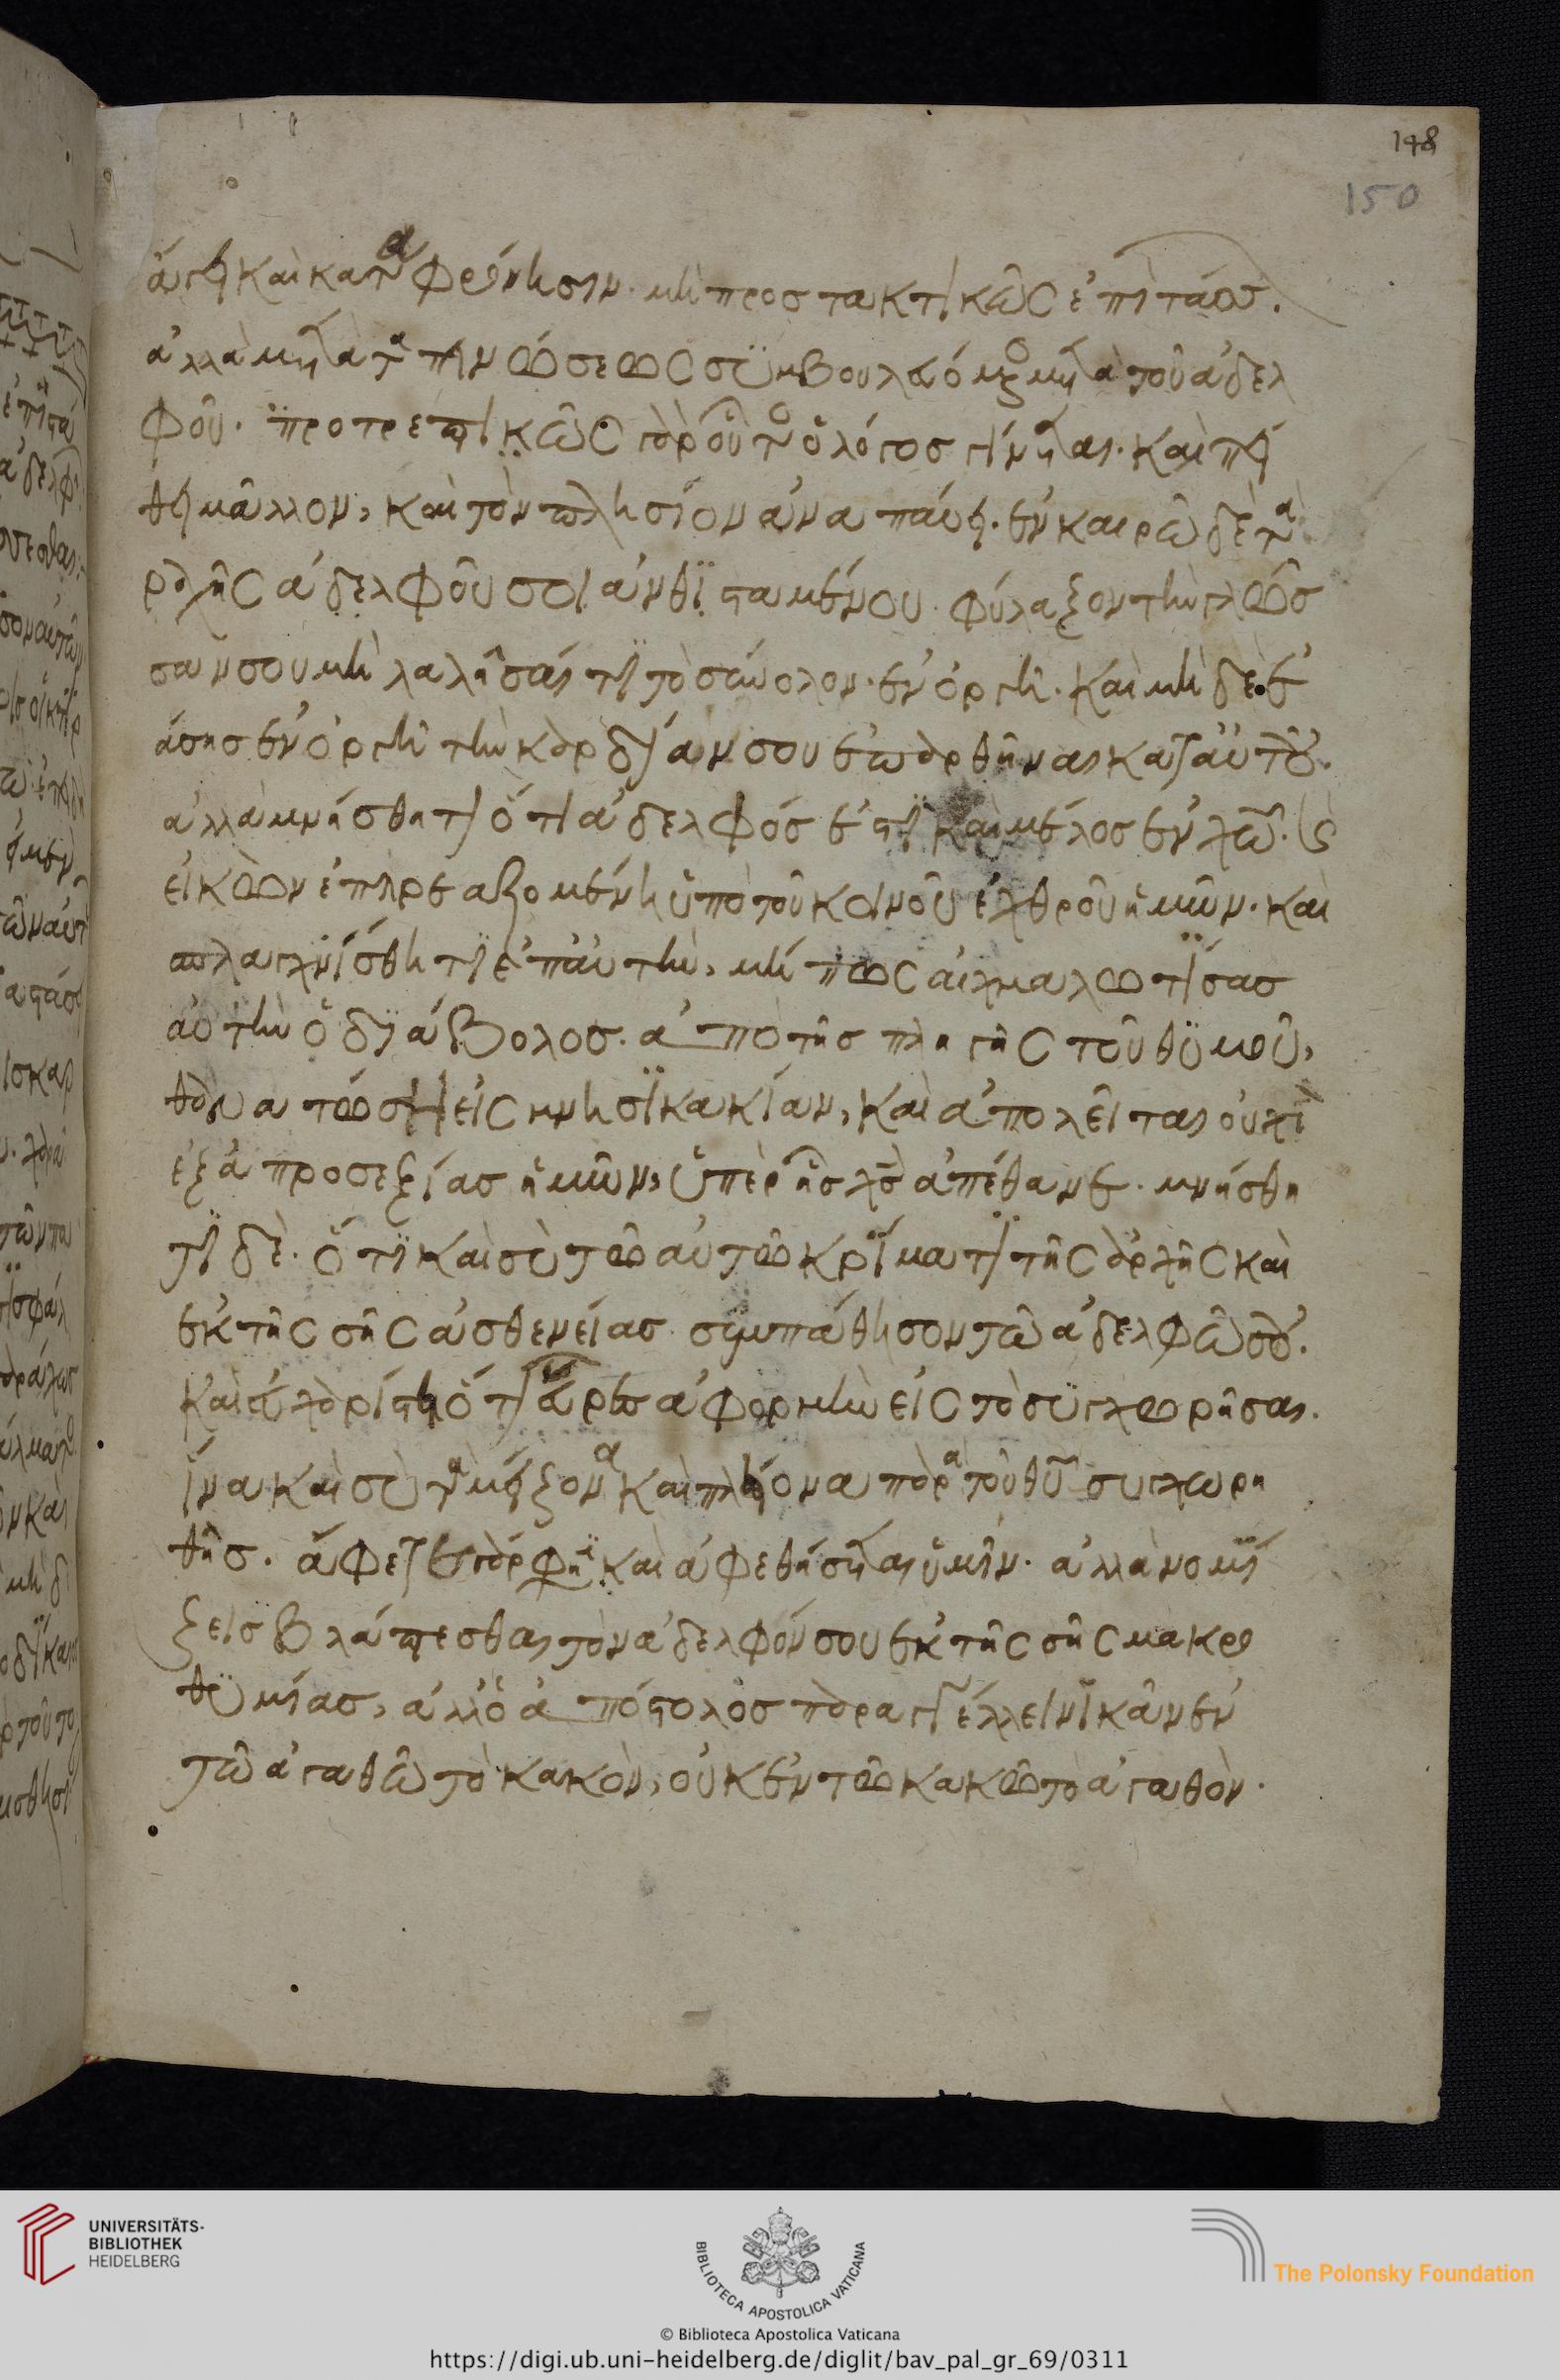 148
150
ἄγει καὶ κατὰ φρόνησιν. μὴ προστακτικῶς ἐπιτάσσων.
ἀλλὰ μετὰ ταπεινώσεως συμβουλευόμενος μετὰ τοῦ ἀδελ
φοῦ. προτρεπτικῶς γὰρ οὗτος ὁ λόγος γίνεται. καὶ πεί
θει μᾶλλον, καὶ τὸν πλησίον ἀναπαύει. ἐν καιρῶ δὲ τα
ραχῆς ἀδελφοῦ σοι ἀνθϊσταμένου. φύλαξον τὴν γλῶσ
σαν σου μὴ λαλῆσαί τϊ τὸ σύνολον. ἐν ὀργῆ. καὶ μὴ δὲ ἐ
άσης ἐν ὀργῆ τὴν καρδίαν σου ἐπαρθῆναι κατ' αὐτοῦ.
ἀλλὰ μνήσθητι ὅτι ἀδελφός ἐστϊ καὶ μέλος ἐν χῶ. καὶ
εἰκὼν ἐπηρεαζομένη ὑπὸ τοῦ κοινοῦ ἐχθροῦ ἡμῶν. καὶ
σπλαγχνίσθητϊ ἐπ' αὐτὴν, μή πως αἰχμαλωτίσας
αὐτὴν ὁ δϊάβολος. ἀπὸ τῆς πληγῆς τοῦ θϋμοῦ,
θανατώση εἰς μνησϊκακίαν, καὶ ἀπολεῖται οὐχὶ
ἐξ ἀπροσεξίας ἡμῶν, ὑπὲρ ἧς χς ἀπέθανε. μνήσθη
τϊ δὲ. ὅτϊ καὶ σὺ τῶ αὐτῶ κρίματι τῆς ὀργῆς καὶ
ἐκ τῆς σῆς ἀσθενείας συμπάθησον τῶ ἀδελφῶ σου.
καὶ εὐχαρίστει ὅτι εὗρες ἀφορμὴν εἰς τὸ συγχωρῆσαι.
ἵνα καὶ σὺ τὰ μείζονα καὶ πλείονα παρὰ τοῦ θυ συγχωρη
θῆς. ἄφετε γάρ φησϊ καὶ ἀφεθήσεται ὑμῖν. ἀλλὰ νομί
ζεις βλάπτεσθαι τὸν ἀδελφόν σου ἐκ τῆς σῆς μακρο
θϋμίας, ἀλλ' ὁ ἀπόστολος παραγγέλλει νϊκᾶν ἐν
τῶ ἀγαθῶ τὸ κακὸν, οὐκ ἐν τῶ κακῶ τὸ ἀγαθὸν.
UNIVERSITÄTS-
BIBLIOTHEK
HEIDELBERG
BIBLIOTECA APOSTOLICA VATICANA
The Polonsky Foundation
© Biblioteca Apostolica Vaticana
https://digi.ub.uni-heidelberg.de/diglit/bav_pal_gr_69/0311